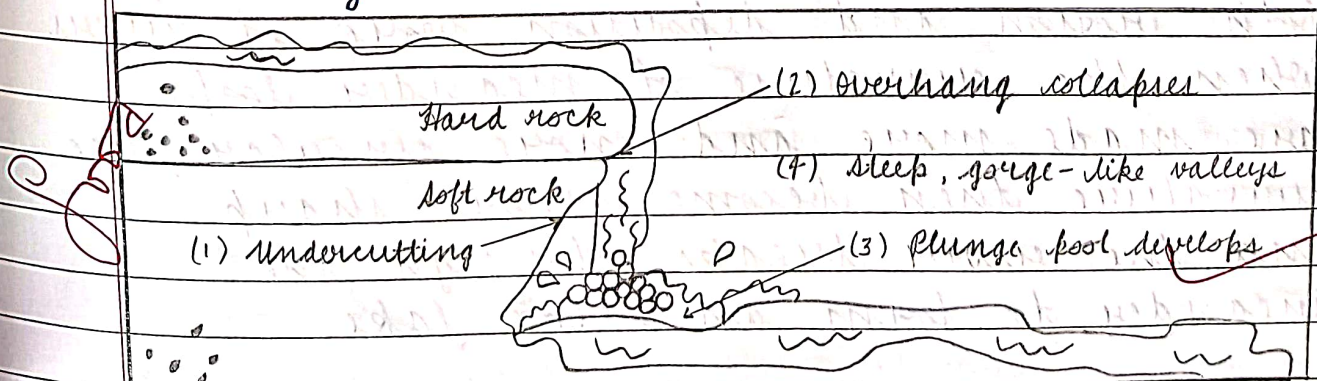 Hard rock
(2) Overhang collapses
Soft rock
(4) Steep, gorge-like valleys
(1) Undercutting
(3) Plunge pool develops